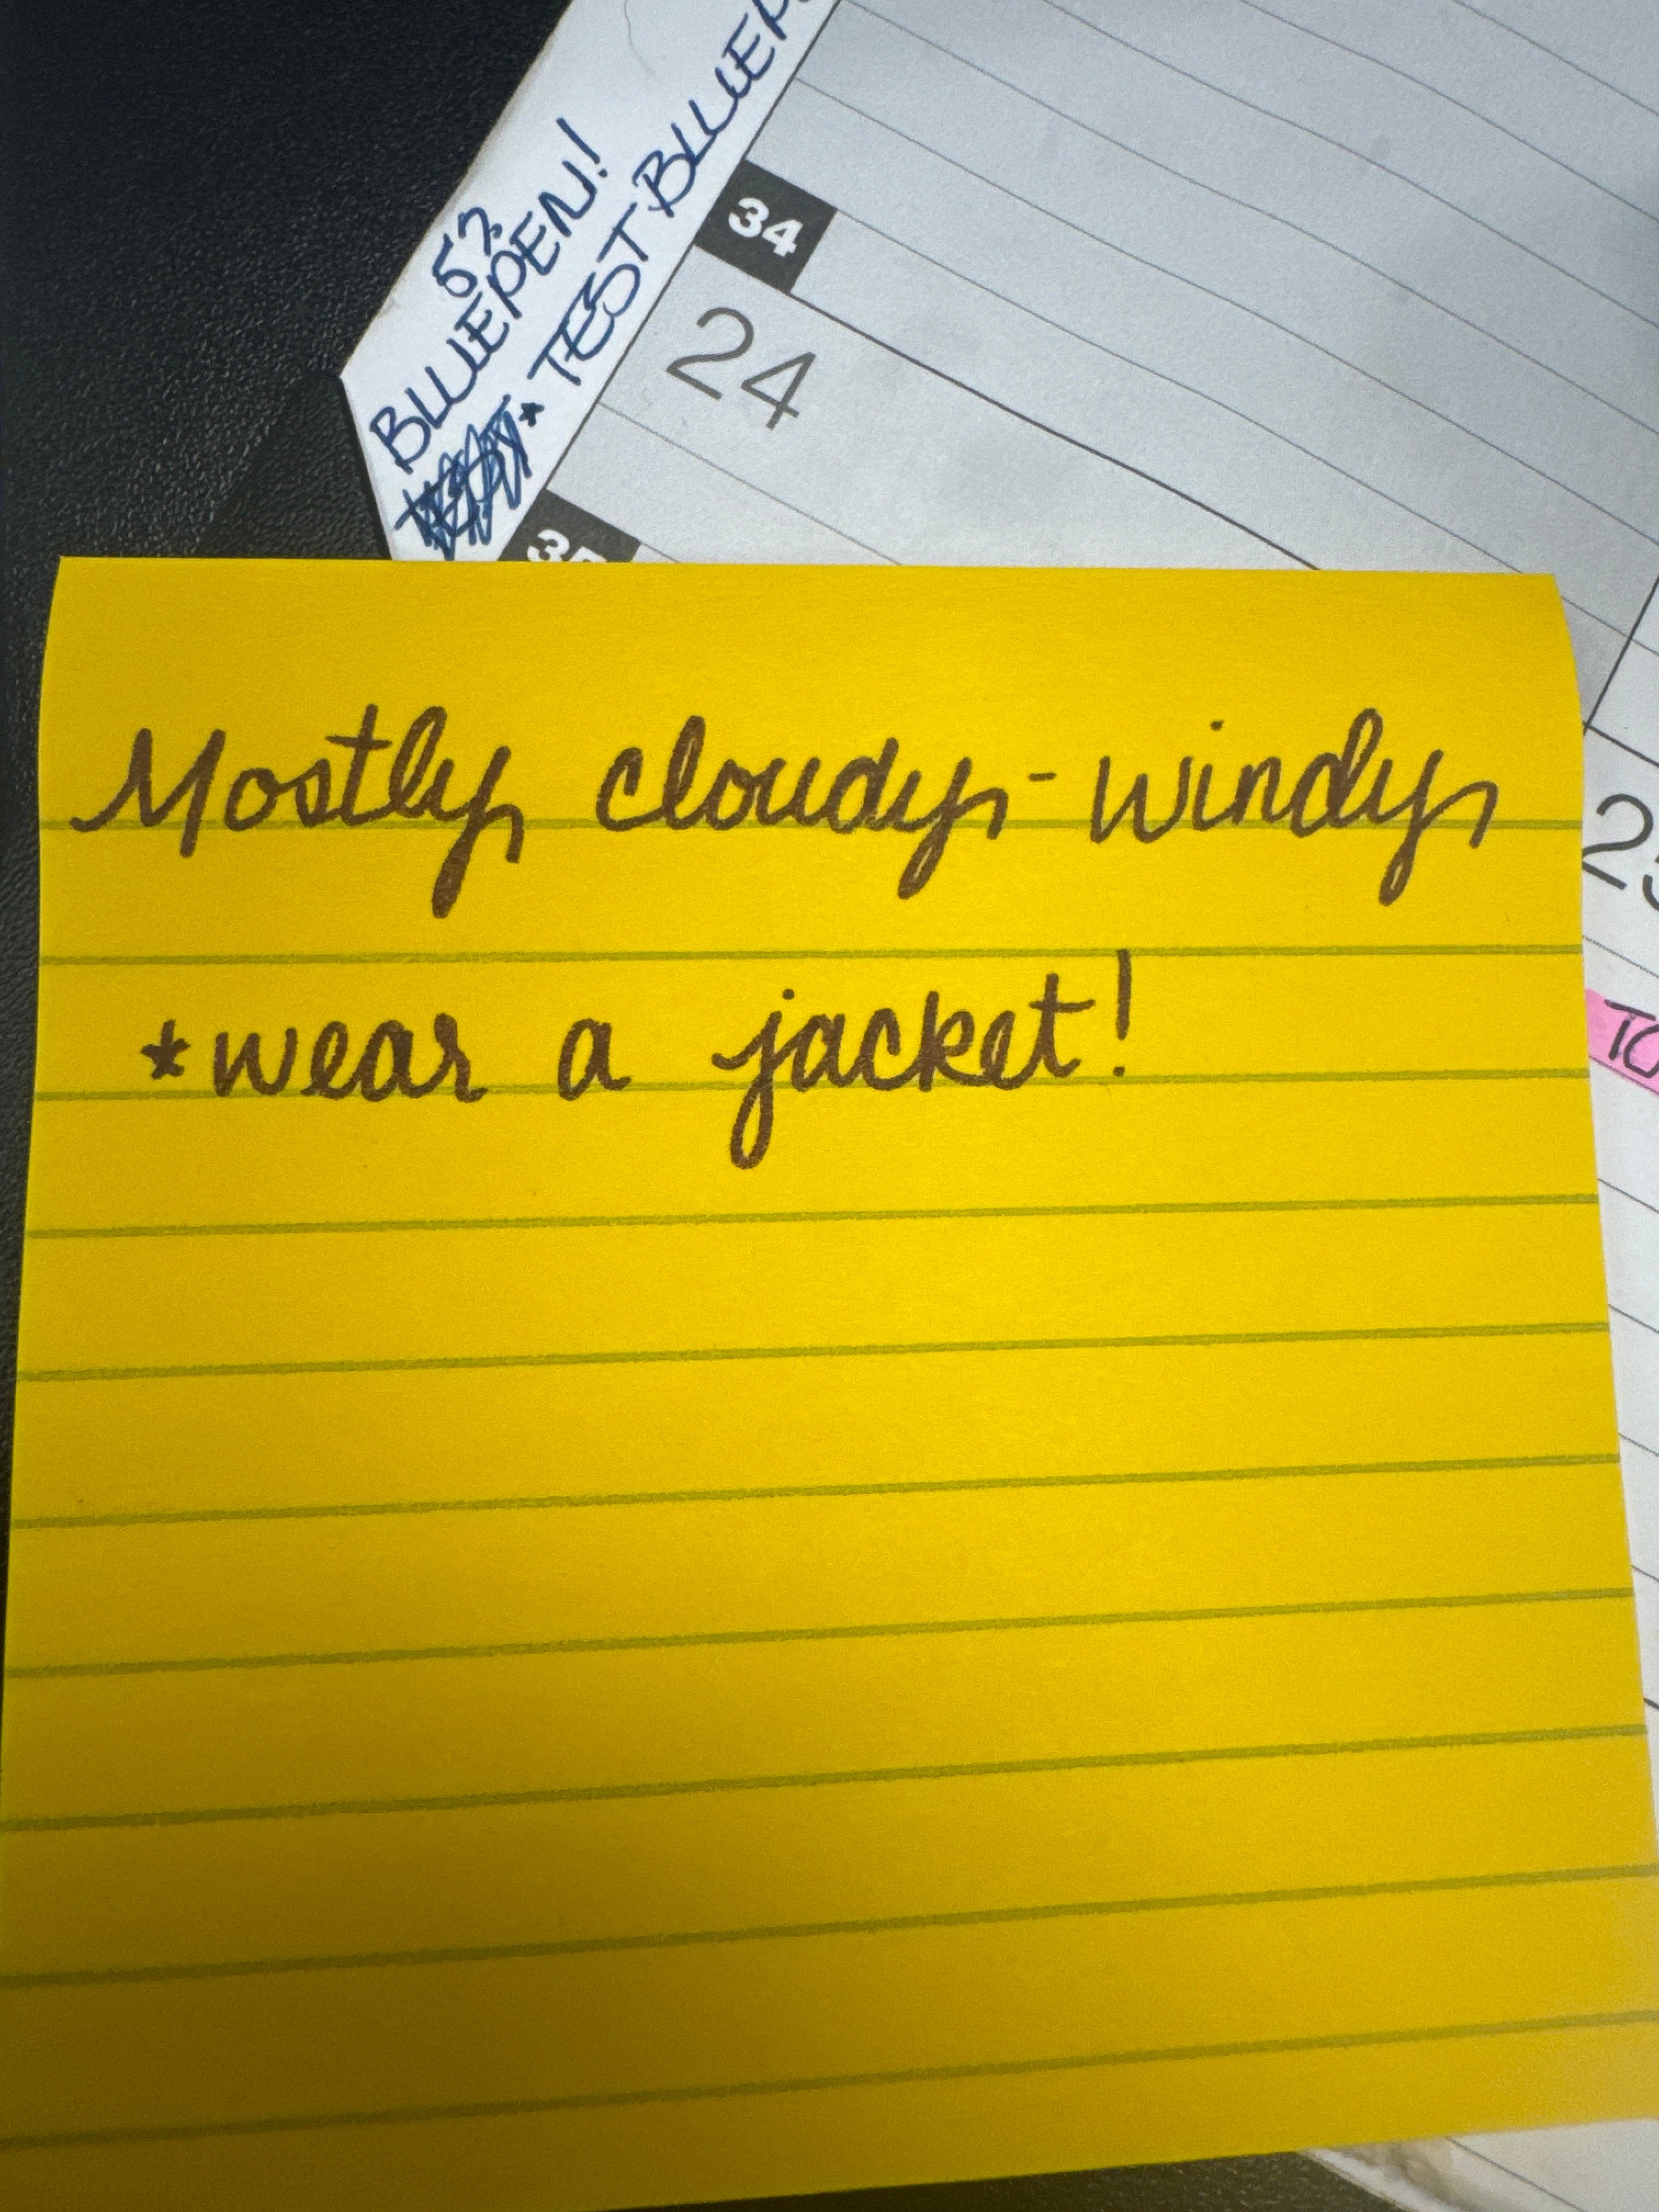 52
BLUEPEN!
* TEST BLUEPE
34
24
35
Mostly cloudy - windy
*wear a jacket!
25
TO